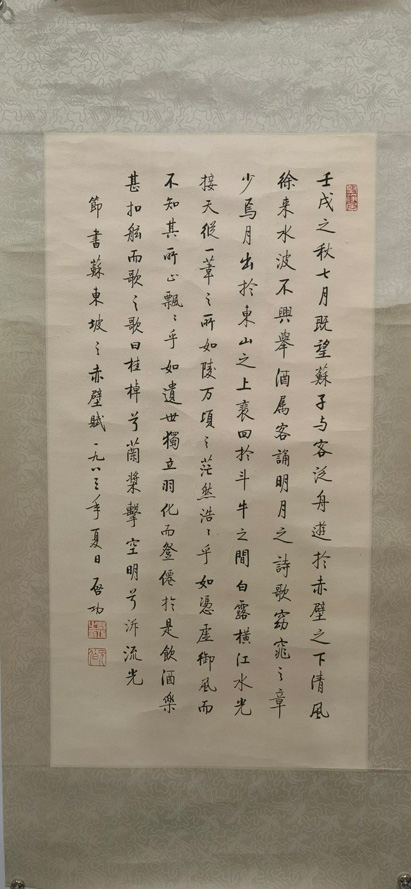 壬戌之秋七月既望蘇子与客泛舟遊於赤壁之下清風
徐来水波不興舉酒属客誦明月之詩歌窈窕之章
少焉月出於東山之上裵回於斗牛之間白露橫江水光
接天從一葦之所如陵万頃之茫然浩浩乎如憑虛御風而
不知其所止飄飄乎如遺世獨立羽化而登僊於是飲酒樂
甚扣舷而歌之歌曰桂棹兮蘭槳擊空明兮泝流光
節書蘇東坡之赤壁賦一九八三年夏日啓功